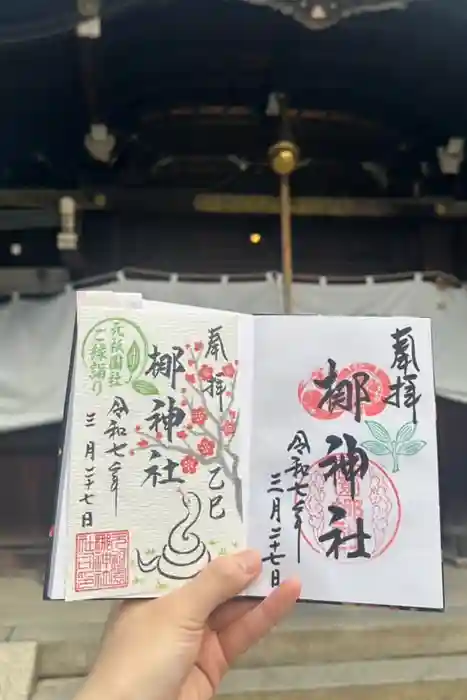 奉拝
梛神社
令和七年
三月二十七日
奉拝
乙巳
梛神社
令和七年
三月二十七日
元祇園社
ご縁詣り